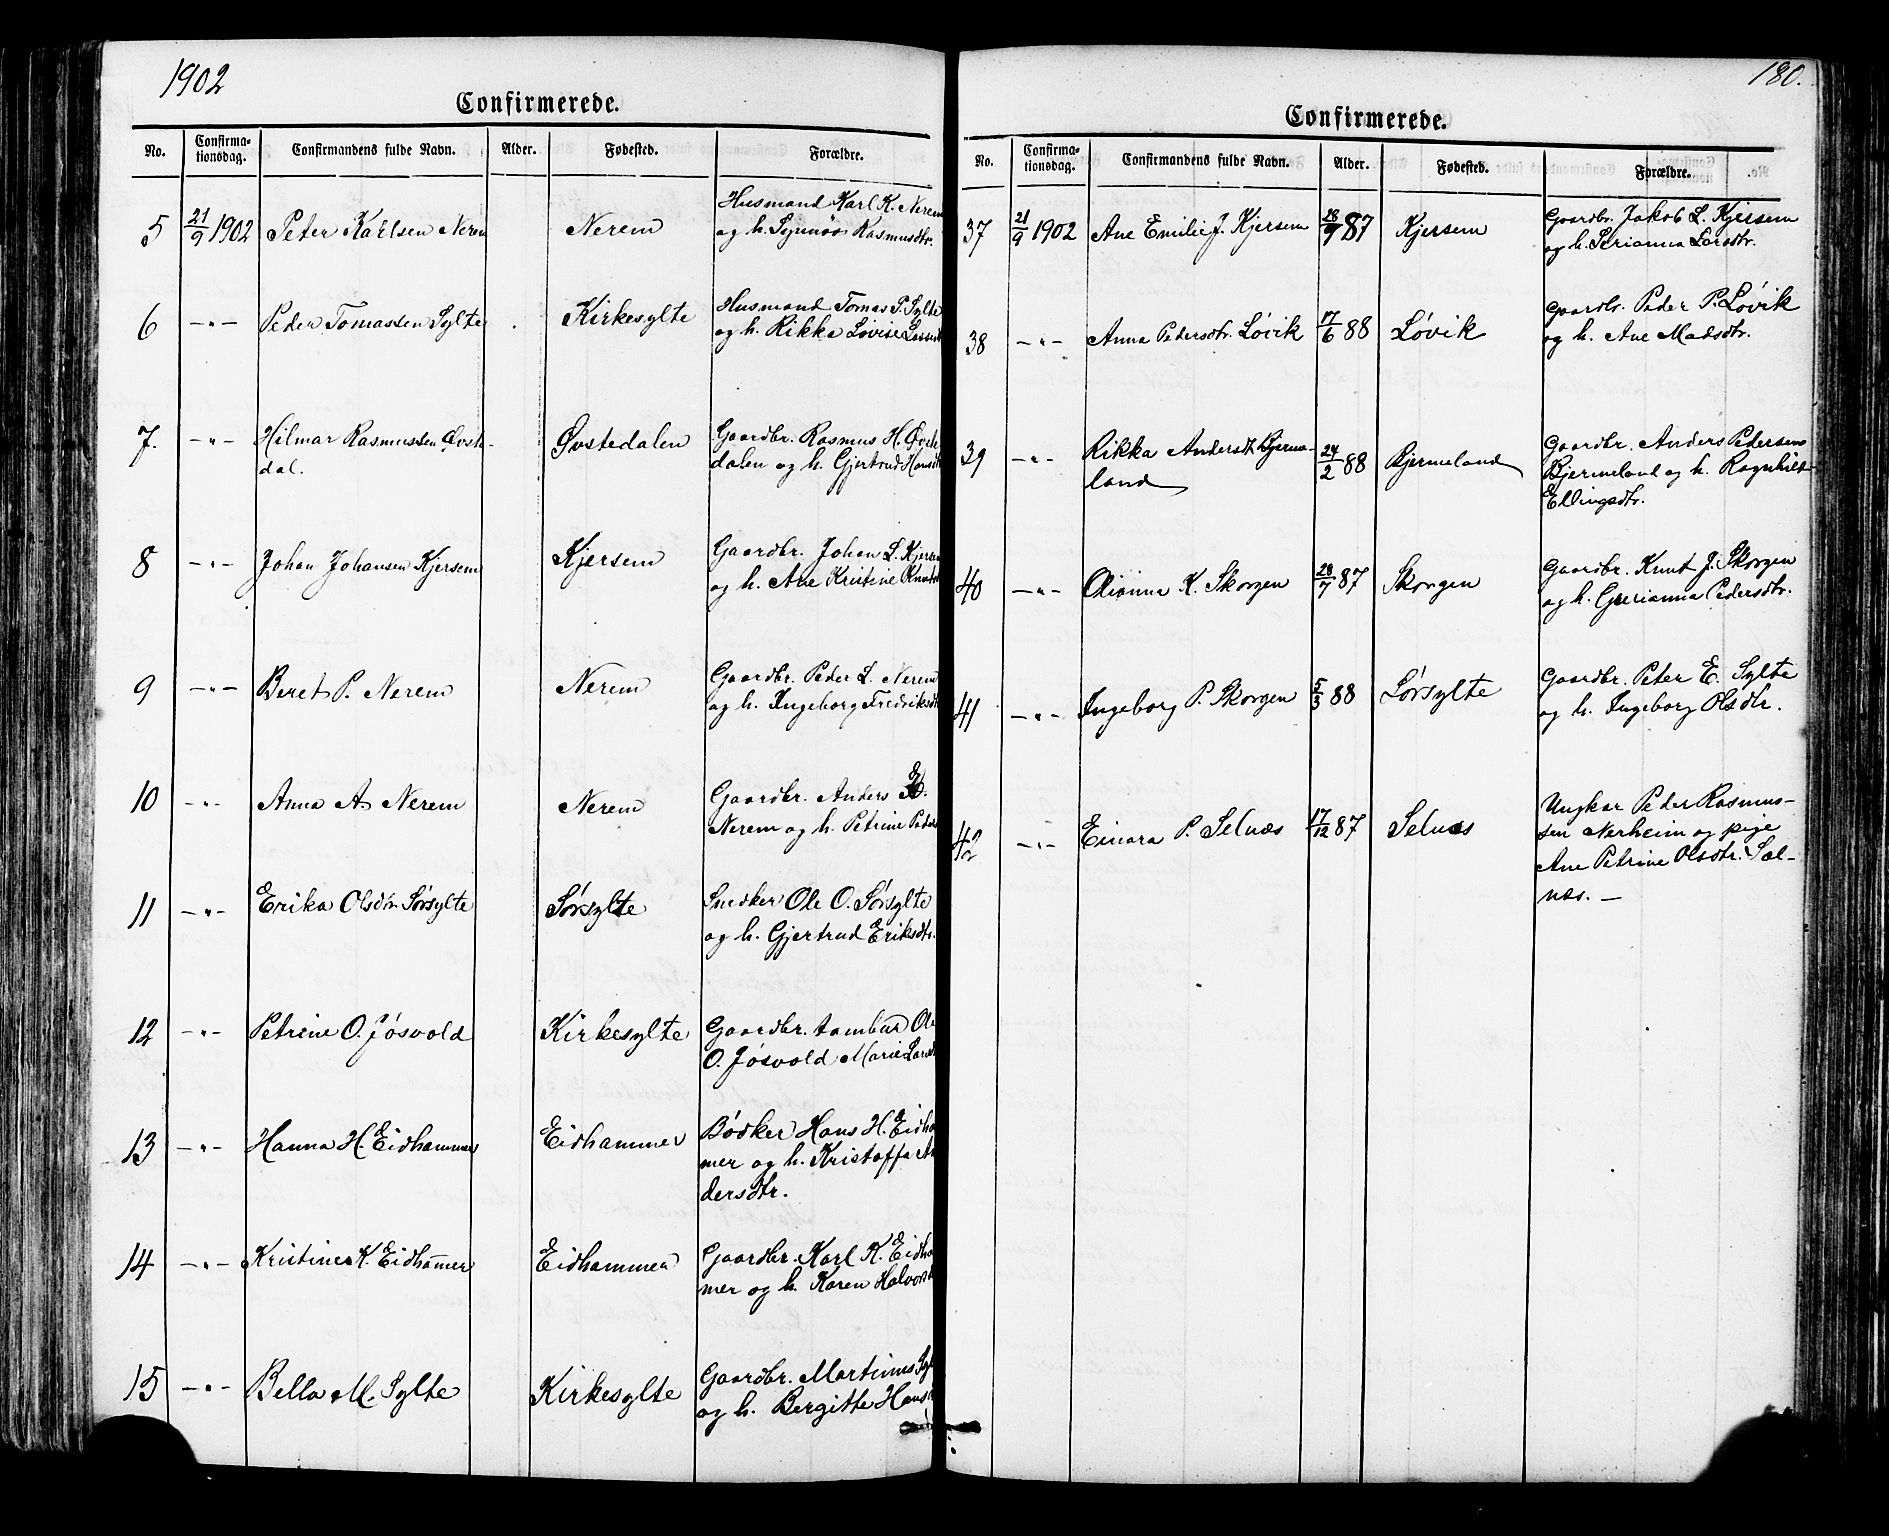 1902
Confirmerede.
No. Confirma-tionsdag. Confirmandens fulde Navn. Alder. Fødested. Forældre.
5 21/9 1902 Peter Karlsen Nerem Nerem Husmand Karl K. Nerem
og h. Rasmusdtr.
6 -"- Peder Tomassen Sylte Kirkesylte Husmand Tomas P. Sylte
og h. Rikka Lovise
7. -"- Hilmar Rasmussen Øvste-
dal. Øvstedalen Gaardbr. Rasmus H. Øvste
dalen og h. Gjertrud Hansdt
8 -"- Johan Johansen Kjersem Kjersem Gaardbr. Johan L. Kjersem
og h. Ane Kristine Knutsd
9 -"- Beret P. Nerem Nerem Gaardbr. Peder L. Nerem
og h. Ingeborg Fredriksdt
10 -"- Anna A. Nerem Nerem Gaardbr. Anders E.
Nerem og h. Petrine Peders
11 -"- Erika Olsdtr. Sørsylte Sørsylte Snedker Ole O. Sørsylte
og h. Gjertrud Eriksdtr.
12 -"- Petrine O. Jøsvold Kirkesylte Gaardbr. tambur Ole
O. Jøsvold Marie Larsdt
13 -"- Hanna H. Eidhammer Eidhammer Bødker Hans H. Eidha
mer og h. Kristoffa An
dersdtr.
14 -"- Kristine K. Eidham̄er Eidhammer Gaardbr. Karl K. Eidha
mer og h. Karen Halvorsd
15 -"- Bella M. Sylte Kirkesylte Gaardbr. Martinus Syl
og h. Bergitte Hansd
180.
Confirmerede.
No. Confirma-tionsdag. Confirmandens fulde Navn. Alder. Fødested. Forældre.
37 21/9 1902 Ane Emilie J. Kjersem 28/9 87 Kjersem Gaardbr. Jakob L. Kjersem
og h. Serianna Larsdtr.
38 -"- Anna Pedersdtr. Løvik 17/6 88 Løvik Gaardbr. Peder P. Løvik
og h. Ane Madsdtr.
39 -"- Rikka Andersdt. Bjerme-
land 24/2 88 Bjermeland Gaardbr. Anders Pedersen
Bjermeland og h. Ragnhild
Ellingsdtr.
40 -"- Olianna K. Skorgen 28/7 87 Skorgen Gaardbr. Knut J. Skorgen
og h. Gurianna Pedersdtr.
41 -"- Ingeborg P. Skorgen 5/3 88 Sørsylte Gaardbr. Peter E. Sylte
og h. Ingeborg Olsdtr.
42 -"- Einara P. Selnæs 17/12 87 Selnæs Ungkar Peder Rasmus-
sen Nerheim og pige
Ane Petrine Olsdtr. Sæl-
næs. —